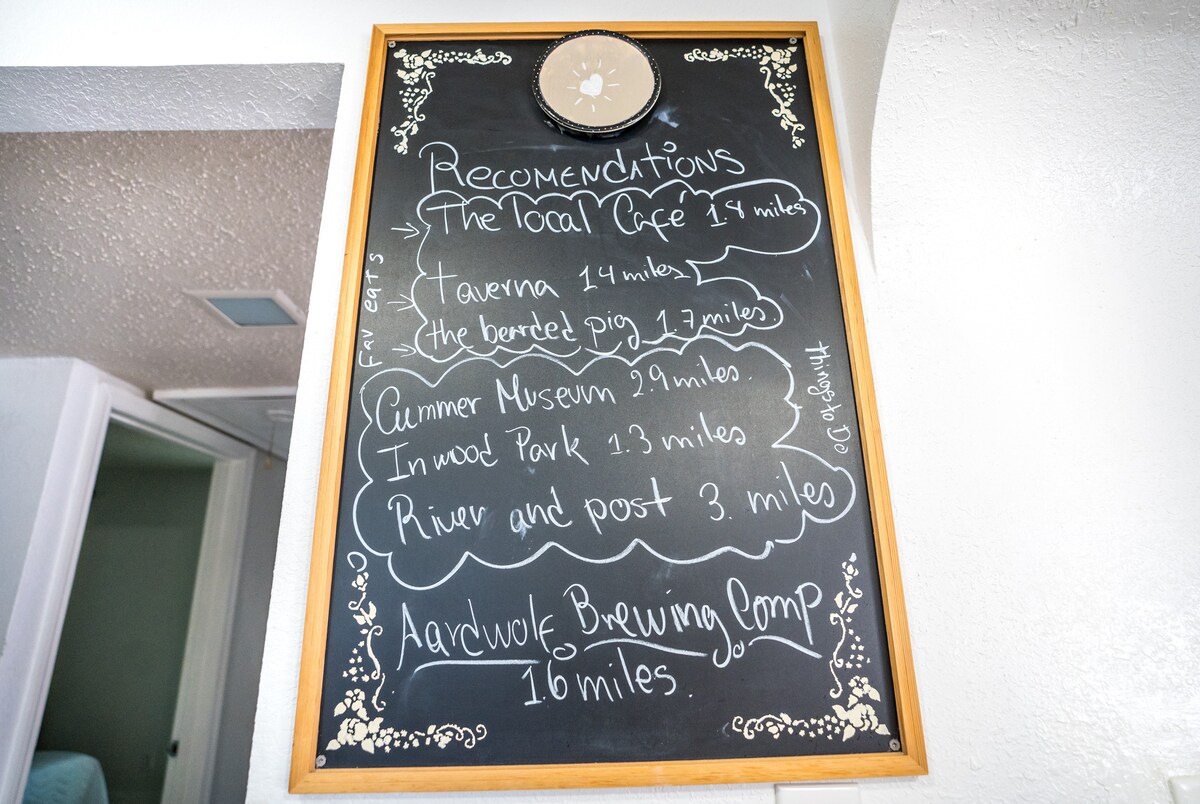 RECOMENDATIONS
The local Café 1.8 miles
Taverna 1.4 miles
the bearded pig 1.7 miles.
Fav eats
Cummer Museum 2.9 miles.
Inwood Park 1.3 miles
River and post 3. miles
Things to
Aardwolf Brewing Comp
1.6 miles.